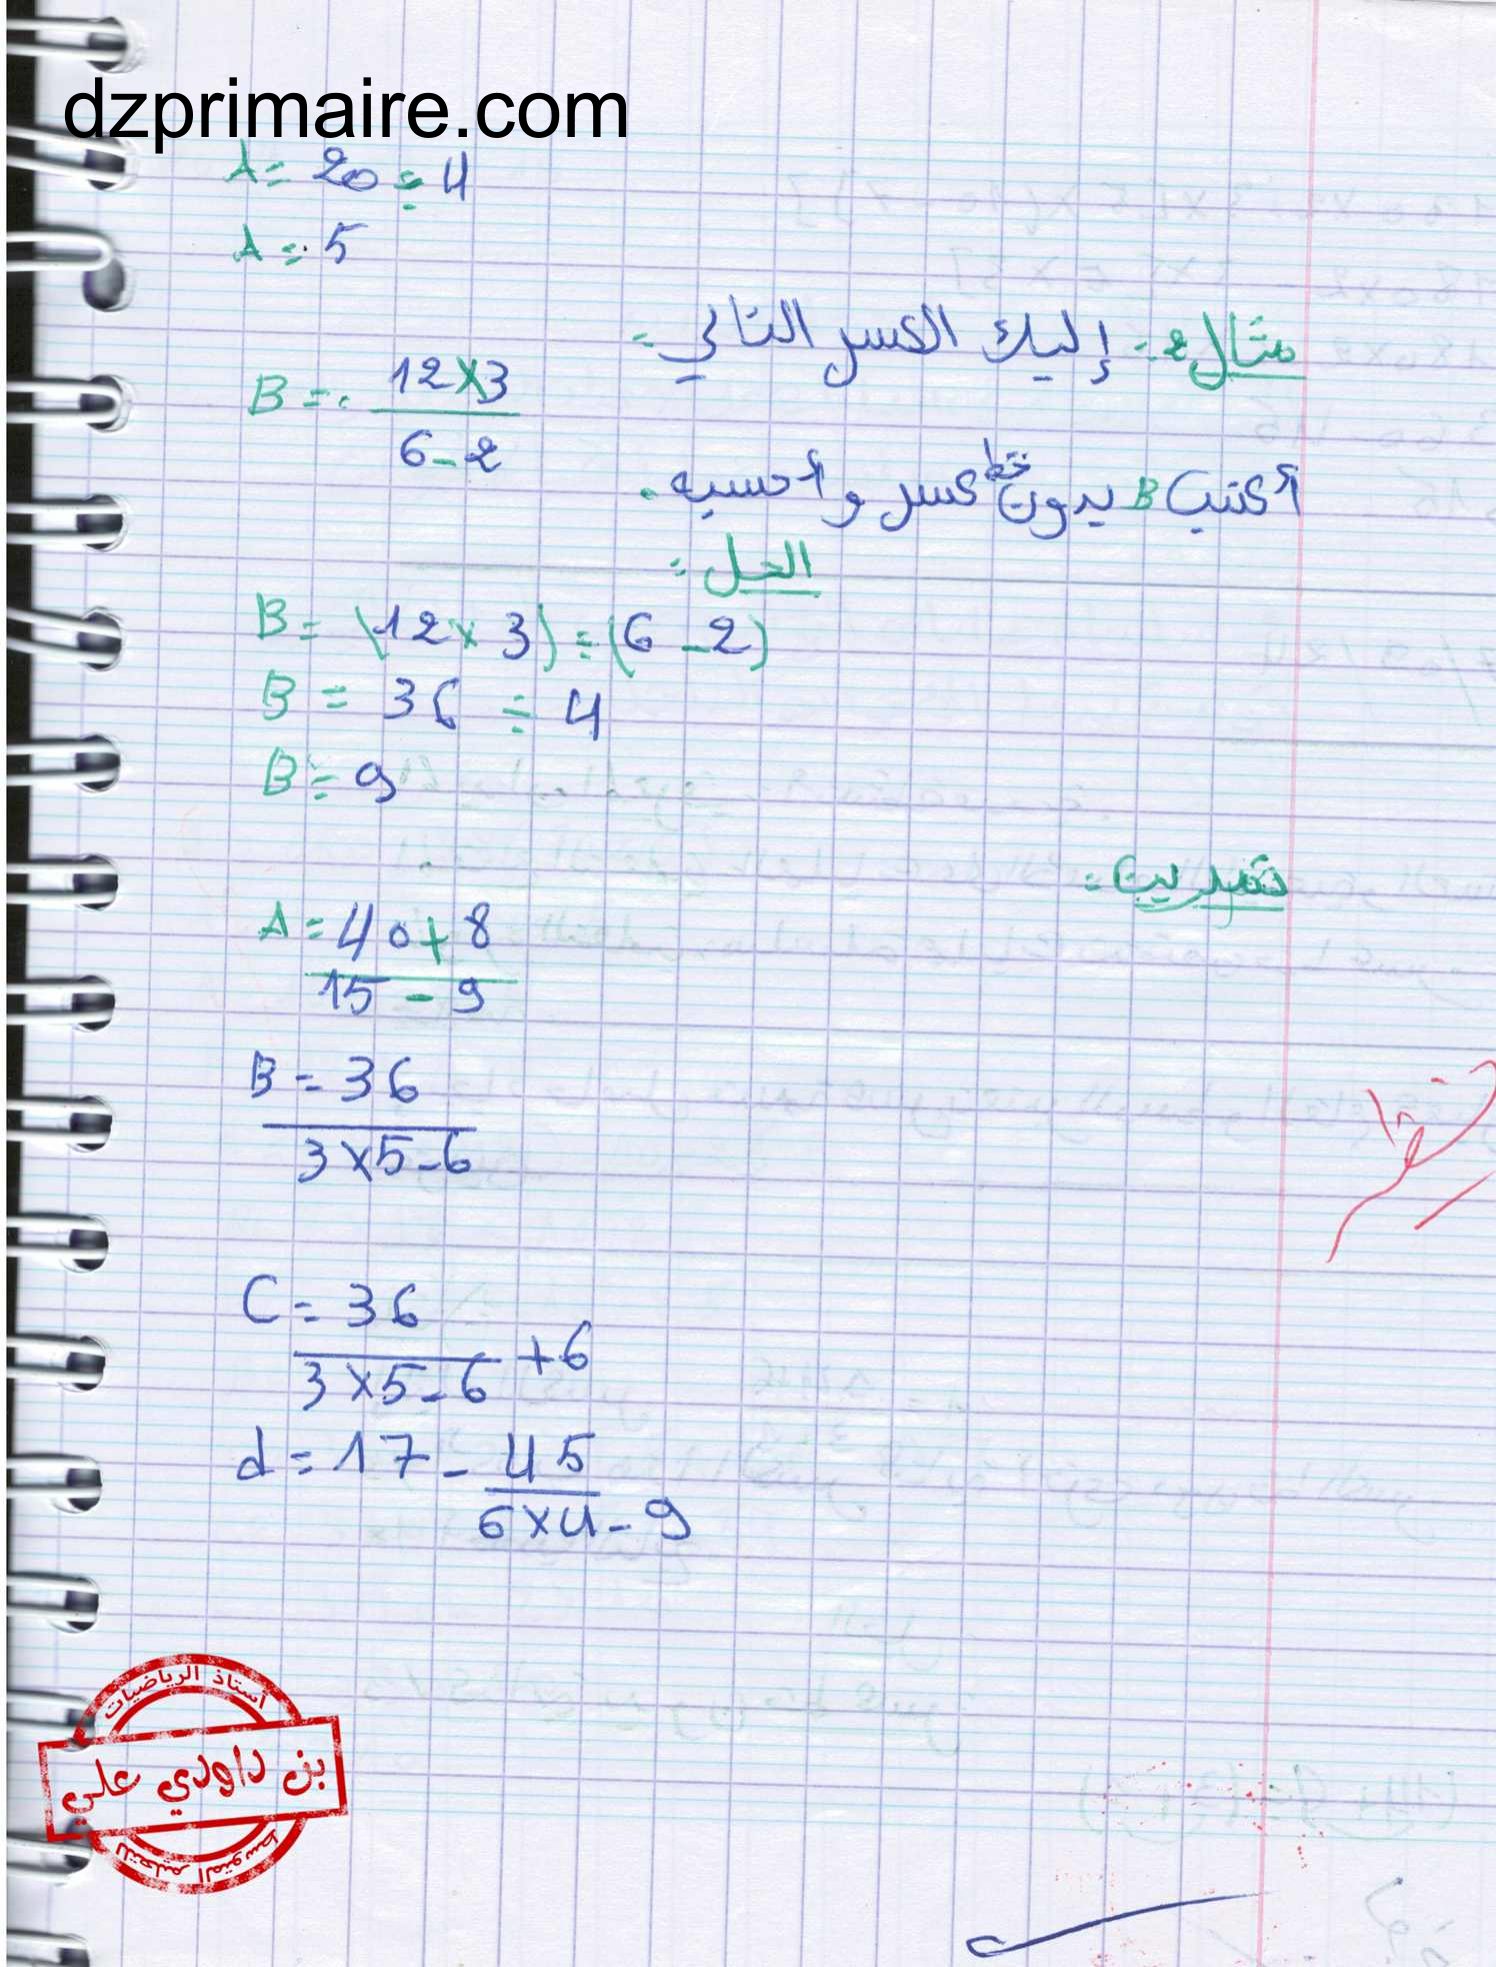 dzprimaire.com
A = 20 ÷ 4
A = 5
مثال 2: إليك الكسر التالي:
B = \frac{12×3}{6-2}
أكتب B بدون خط كسر وأحسبه.
الحل:
B = (12 × 3) ÷ (6 - 2)
B = 36 ÷ 4
B = 9
تدريب:
A = \frac{40+8}{15-9}
B = \frac{36}{3×5-6}
C = \frac{36}{3×5-6} + 6
d = 17 - \frac{45}{6×4-9}
أستاذ الرياضيات
بن داودي علي
للتعليم المتوسط